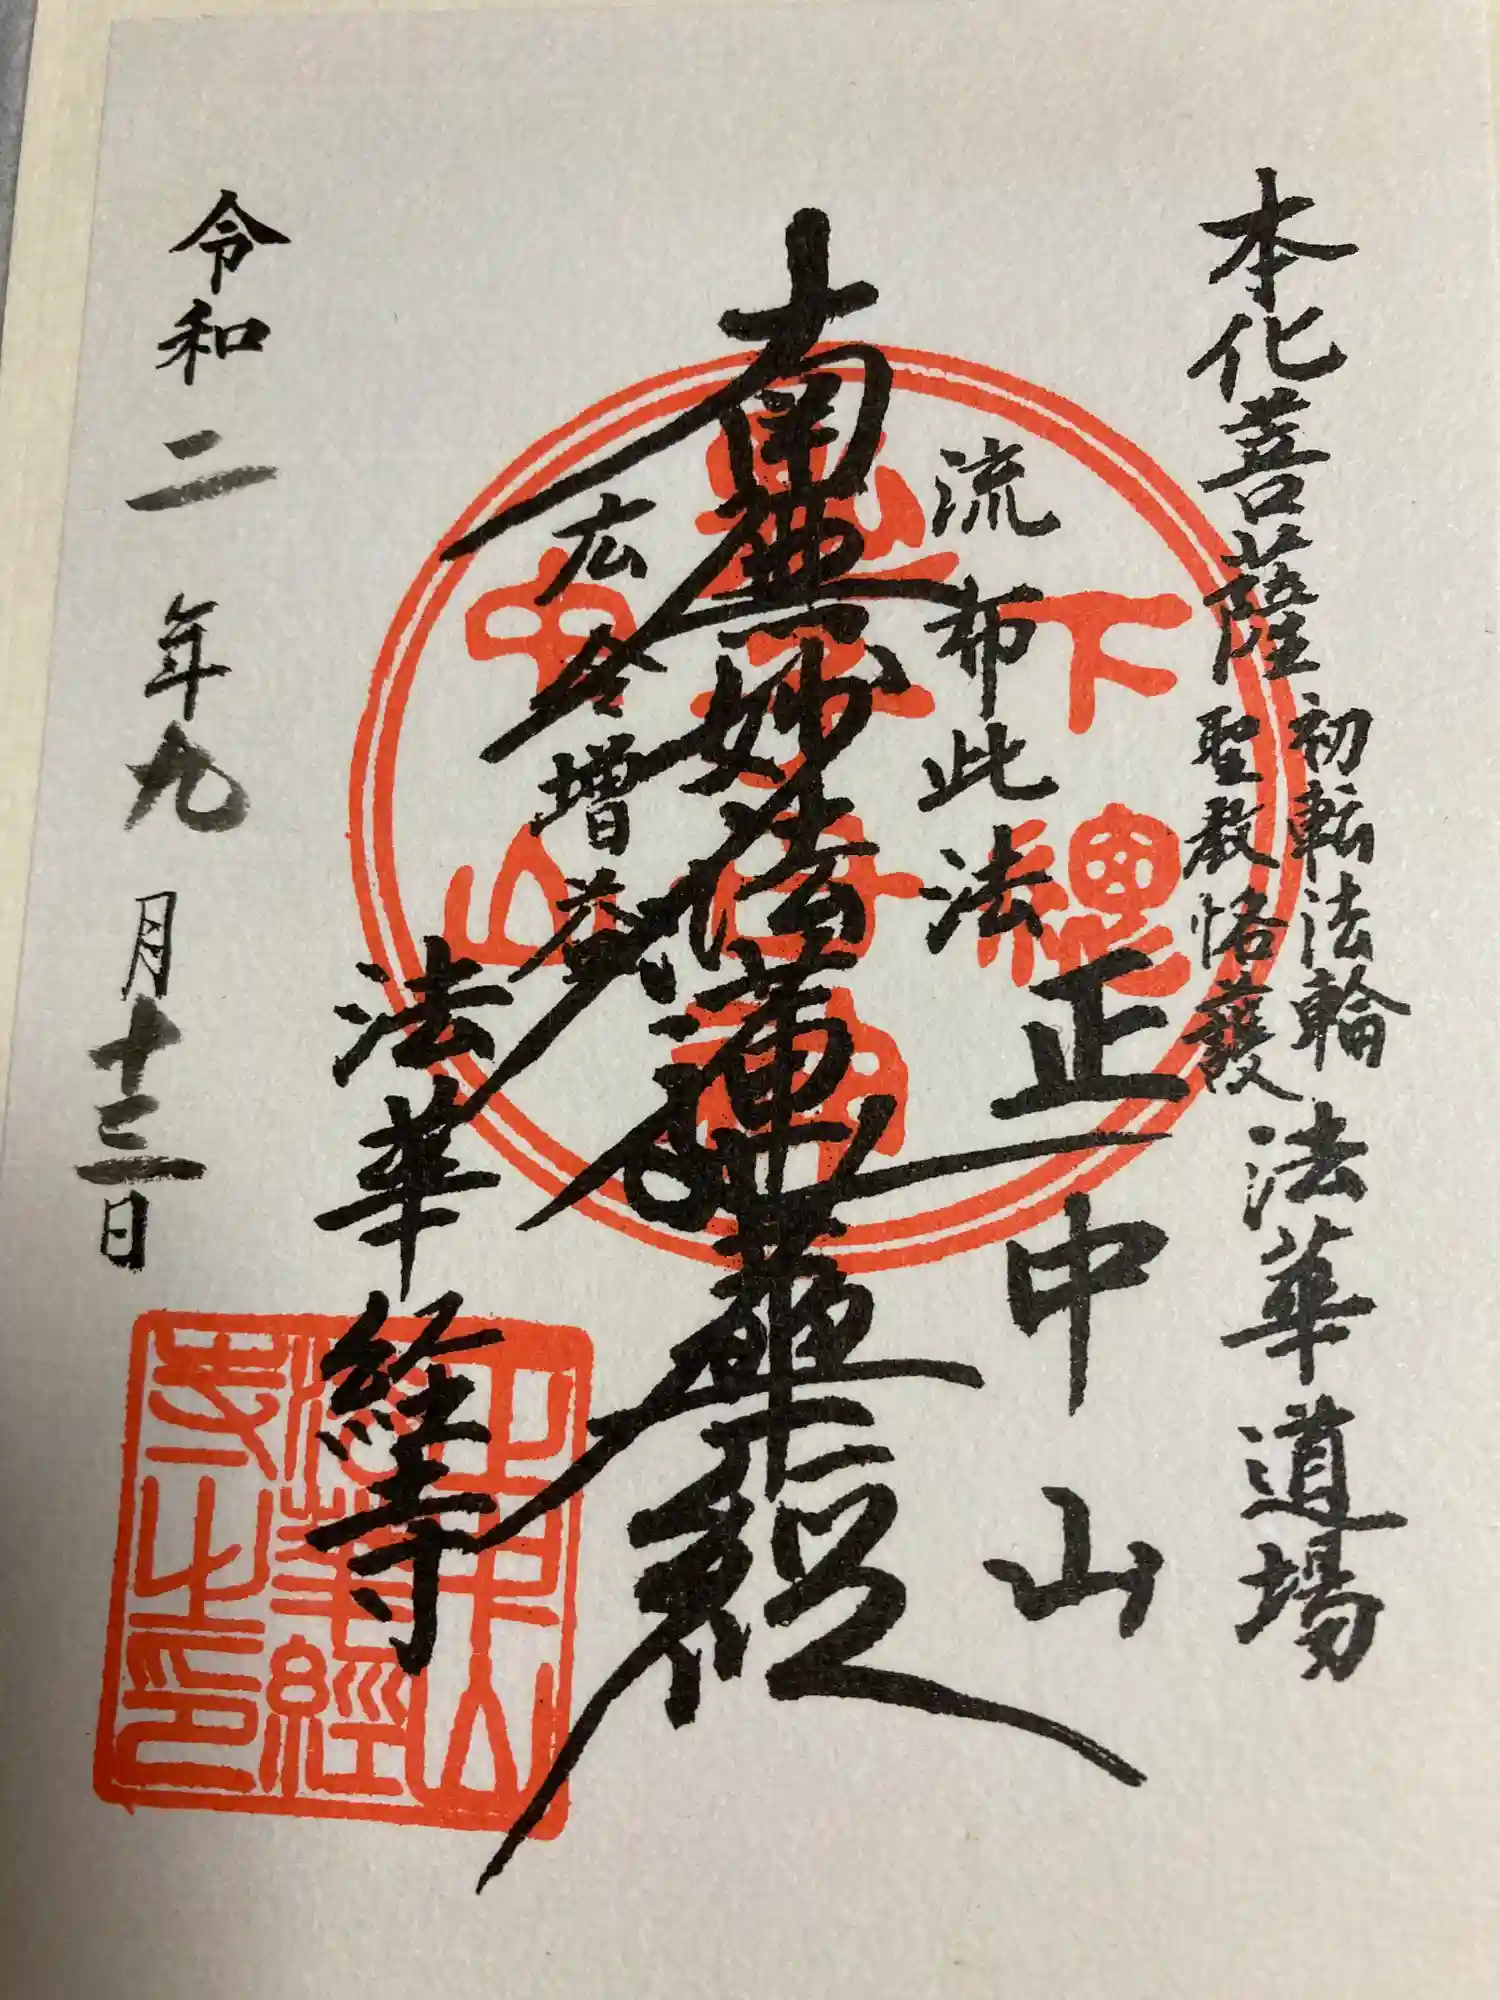 本化菩薩
初転法輪
聖教恪護
法華道場
正中山
流布此法
南無妙法蓮華経
広令増益
法華経寺
令和二年九月十三日
下總
中山
正中山
法華經
寺之印